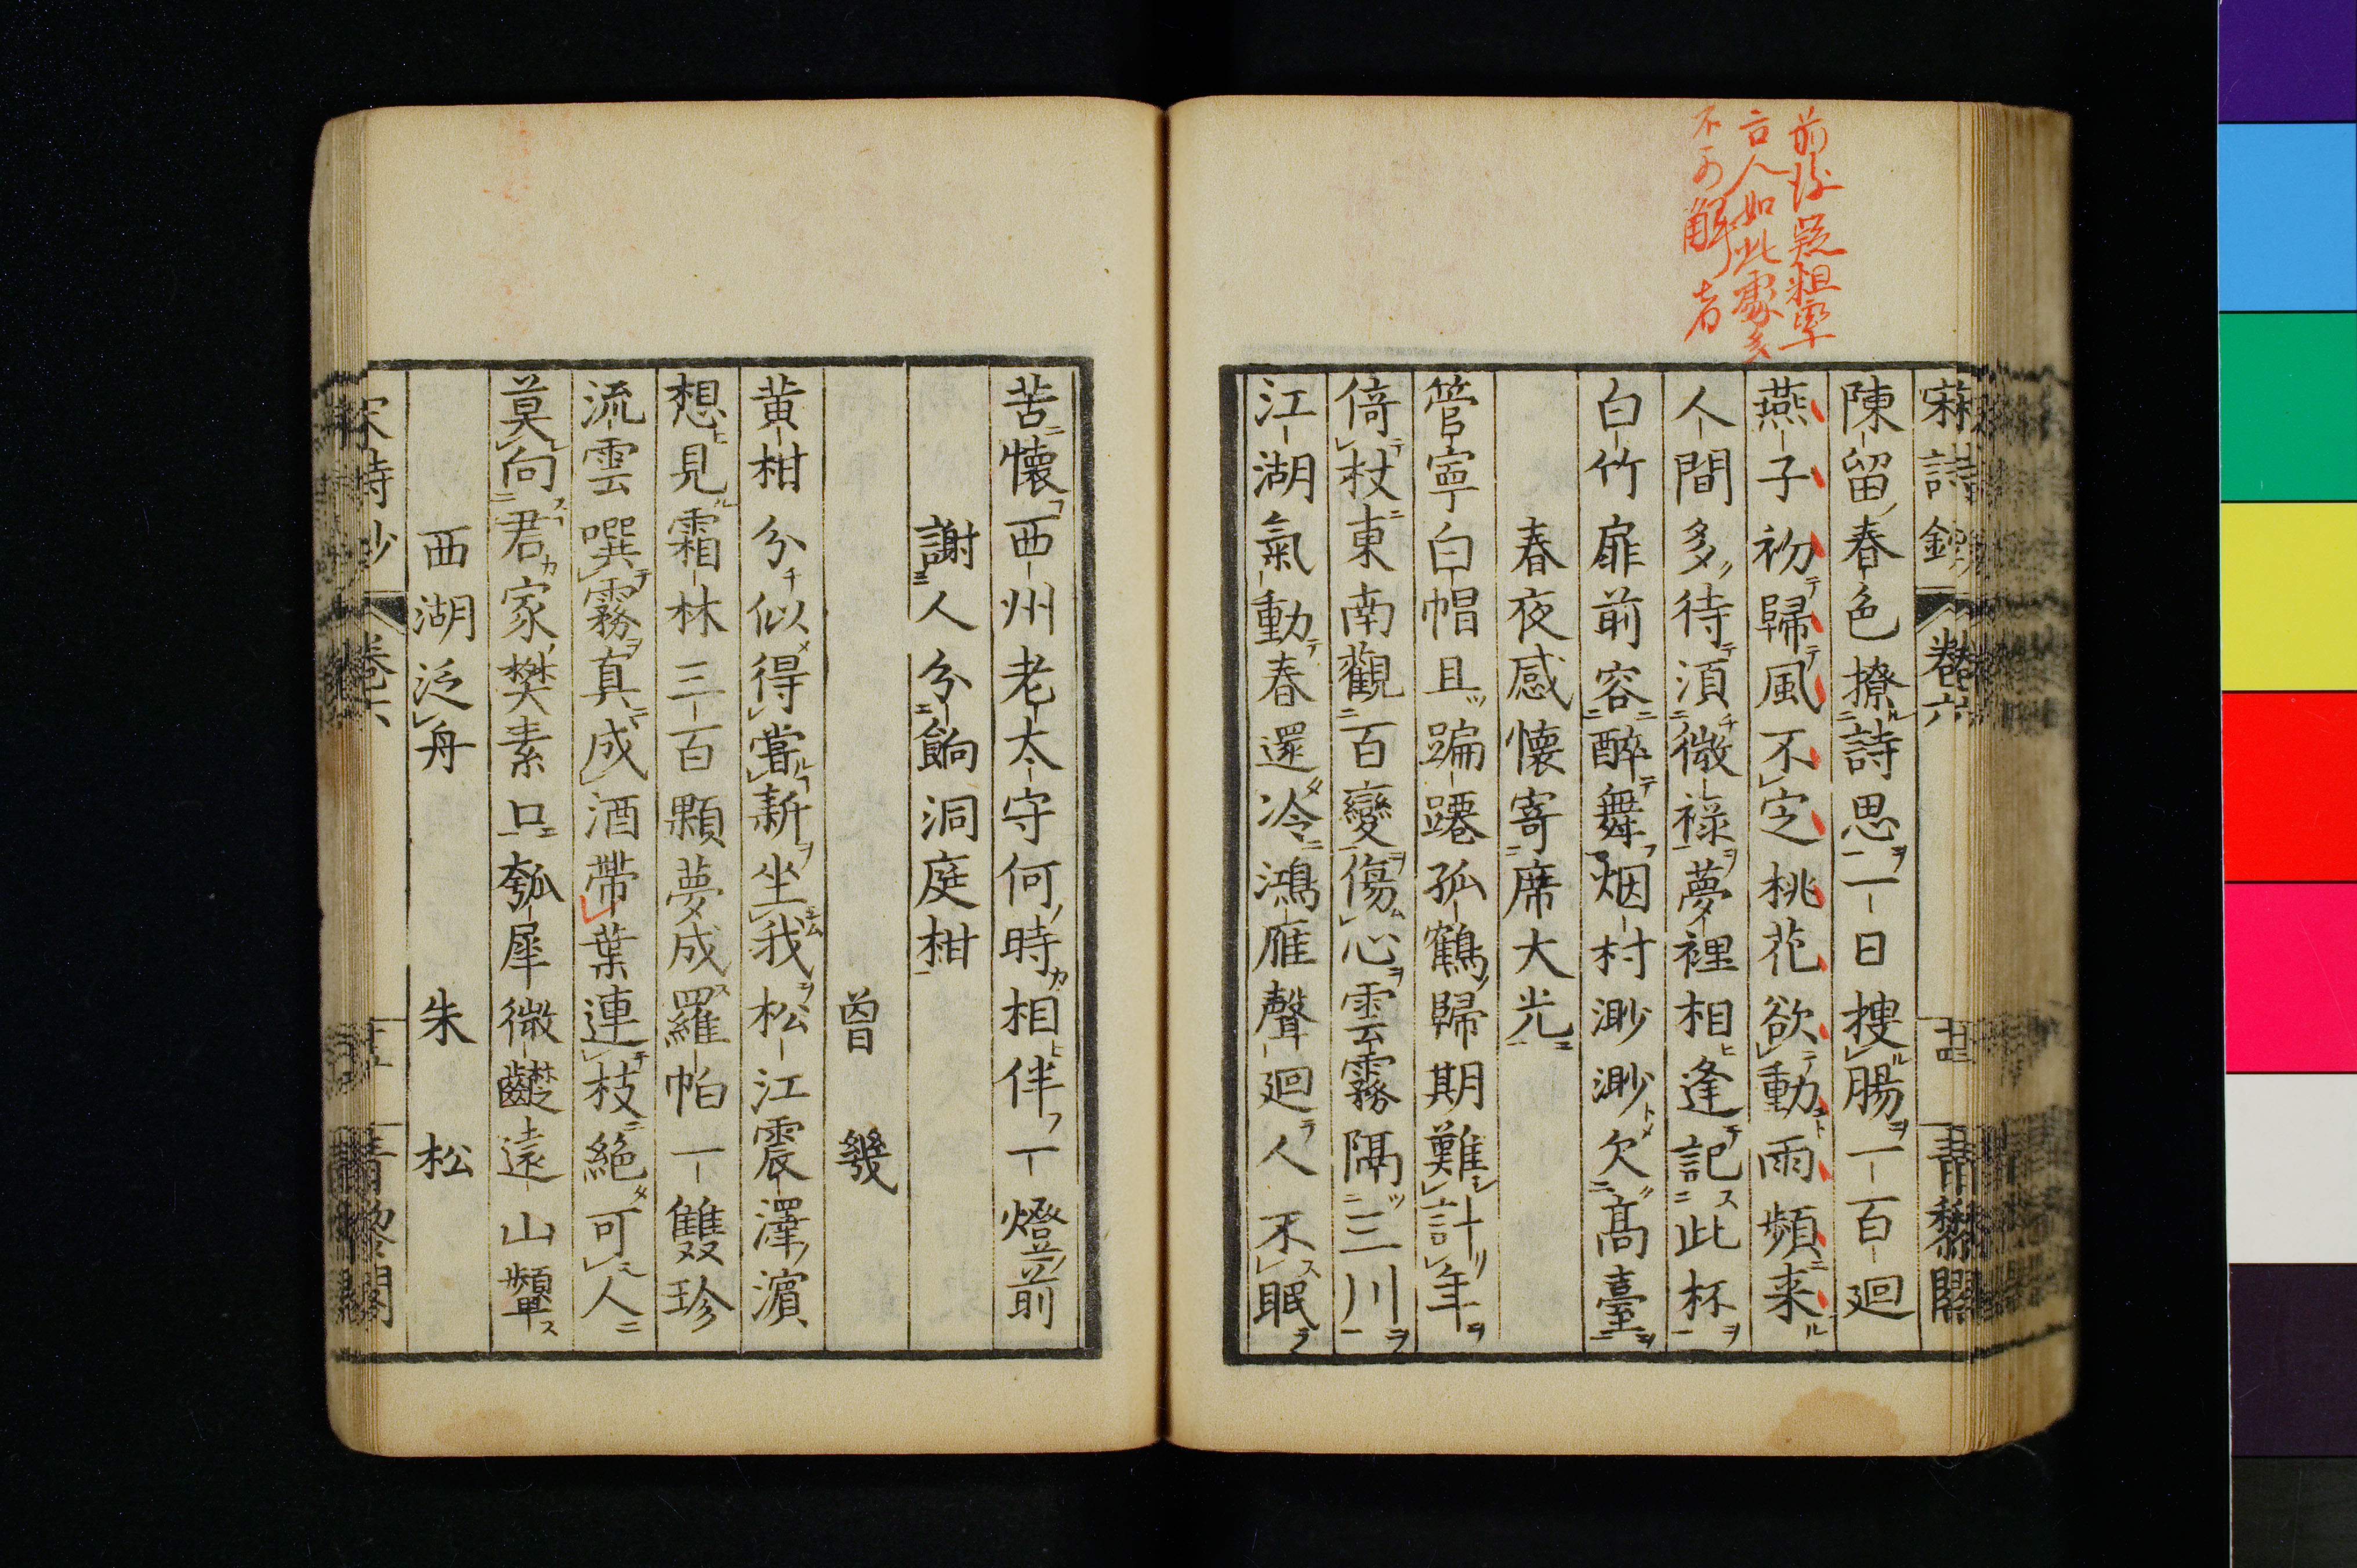 前後疑粗率
古人如此處多
不可解者
宋詩鈔 卷六 十四 青藜閣
陳留春色撩詩思一日搜腸一百廻
燕子初歸風不定桃花欲動雨頻来
人間多待須微祿夢裡相逢記此杯
白竹扉前容醉舞烟村渺渺欠髙臺
春夜感懐寄席大光
管寧白帽且蹁蹮孤鶴歸期難計年
倚杖東南觀百變傷心雲霧隔三川
江湖氣動春還冷鴻雁聲廻人不眠
苦懐西州老太守何時相伴一燈前
謝人分餉洞庭柑
曾幾
黄柑分似得嘗新坐我松江震澤濵
想見霜林三百顆夢成羅帕一雙珍
流雲噀霧真成酒帶葉連枝絶可人
莫向君家樊素口瓠犀微齼遠山顰
西湖泛舟 朱松
宋詩鈔 卷六 青藜閣